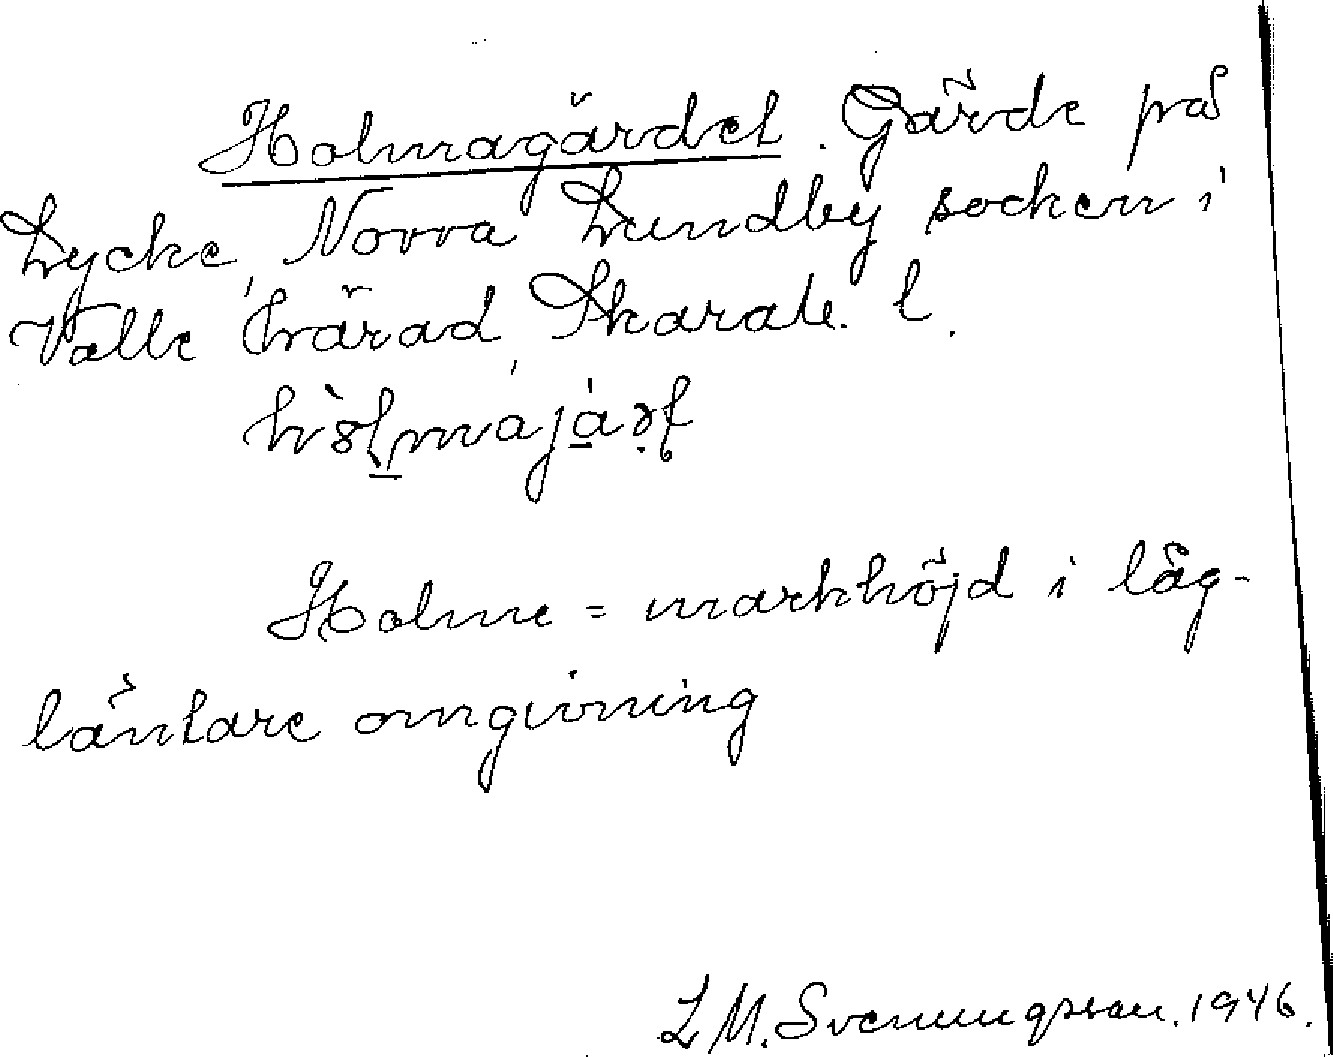 Holmagärdet. Gärde på
Lycke, Norra Lundby socken i
Valle härad, Skarab. l.
Holme = markhöjd i låg-
läntare omgivning
L M. Svenungsson. 1946.